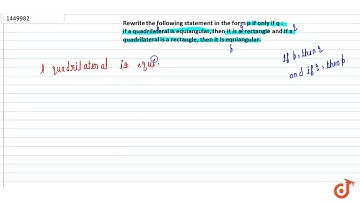 1449982
Rewrite the following statement in the form p if only if q :
if a quadrilateral is equiangular, then it is a rectangle and if a
quadrilateral is a rectangle, then it is equiangular.
A quadrilateral is equi
If p, then q
and if q, then p.